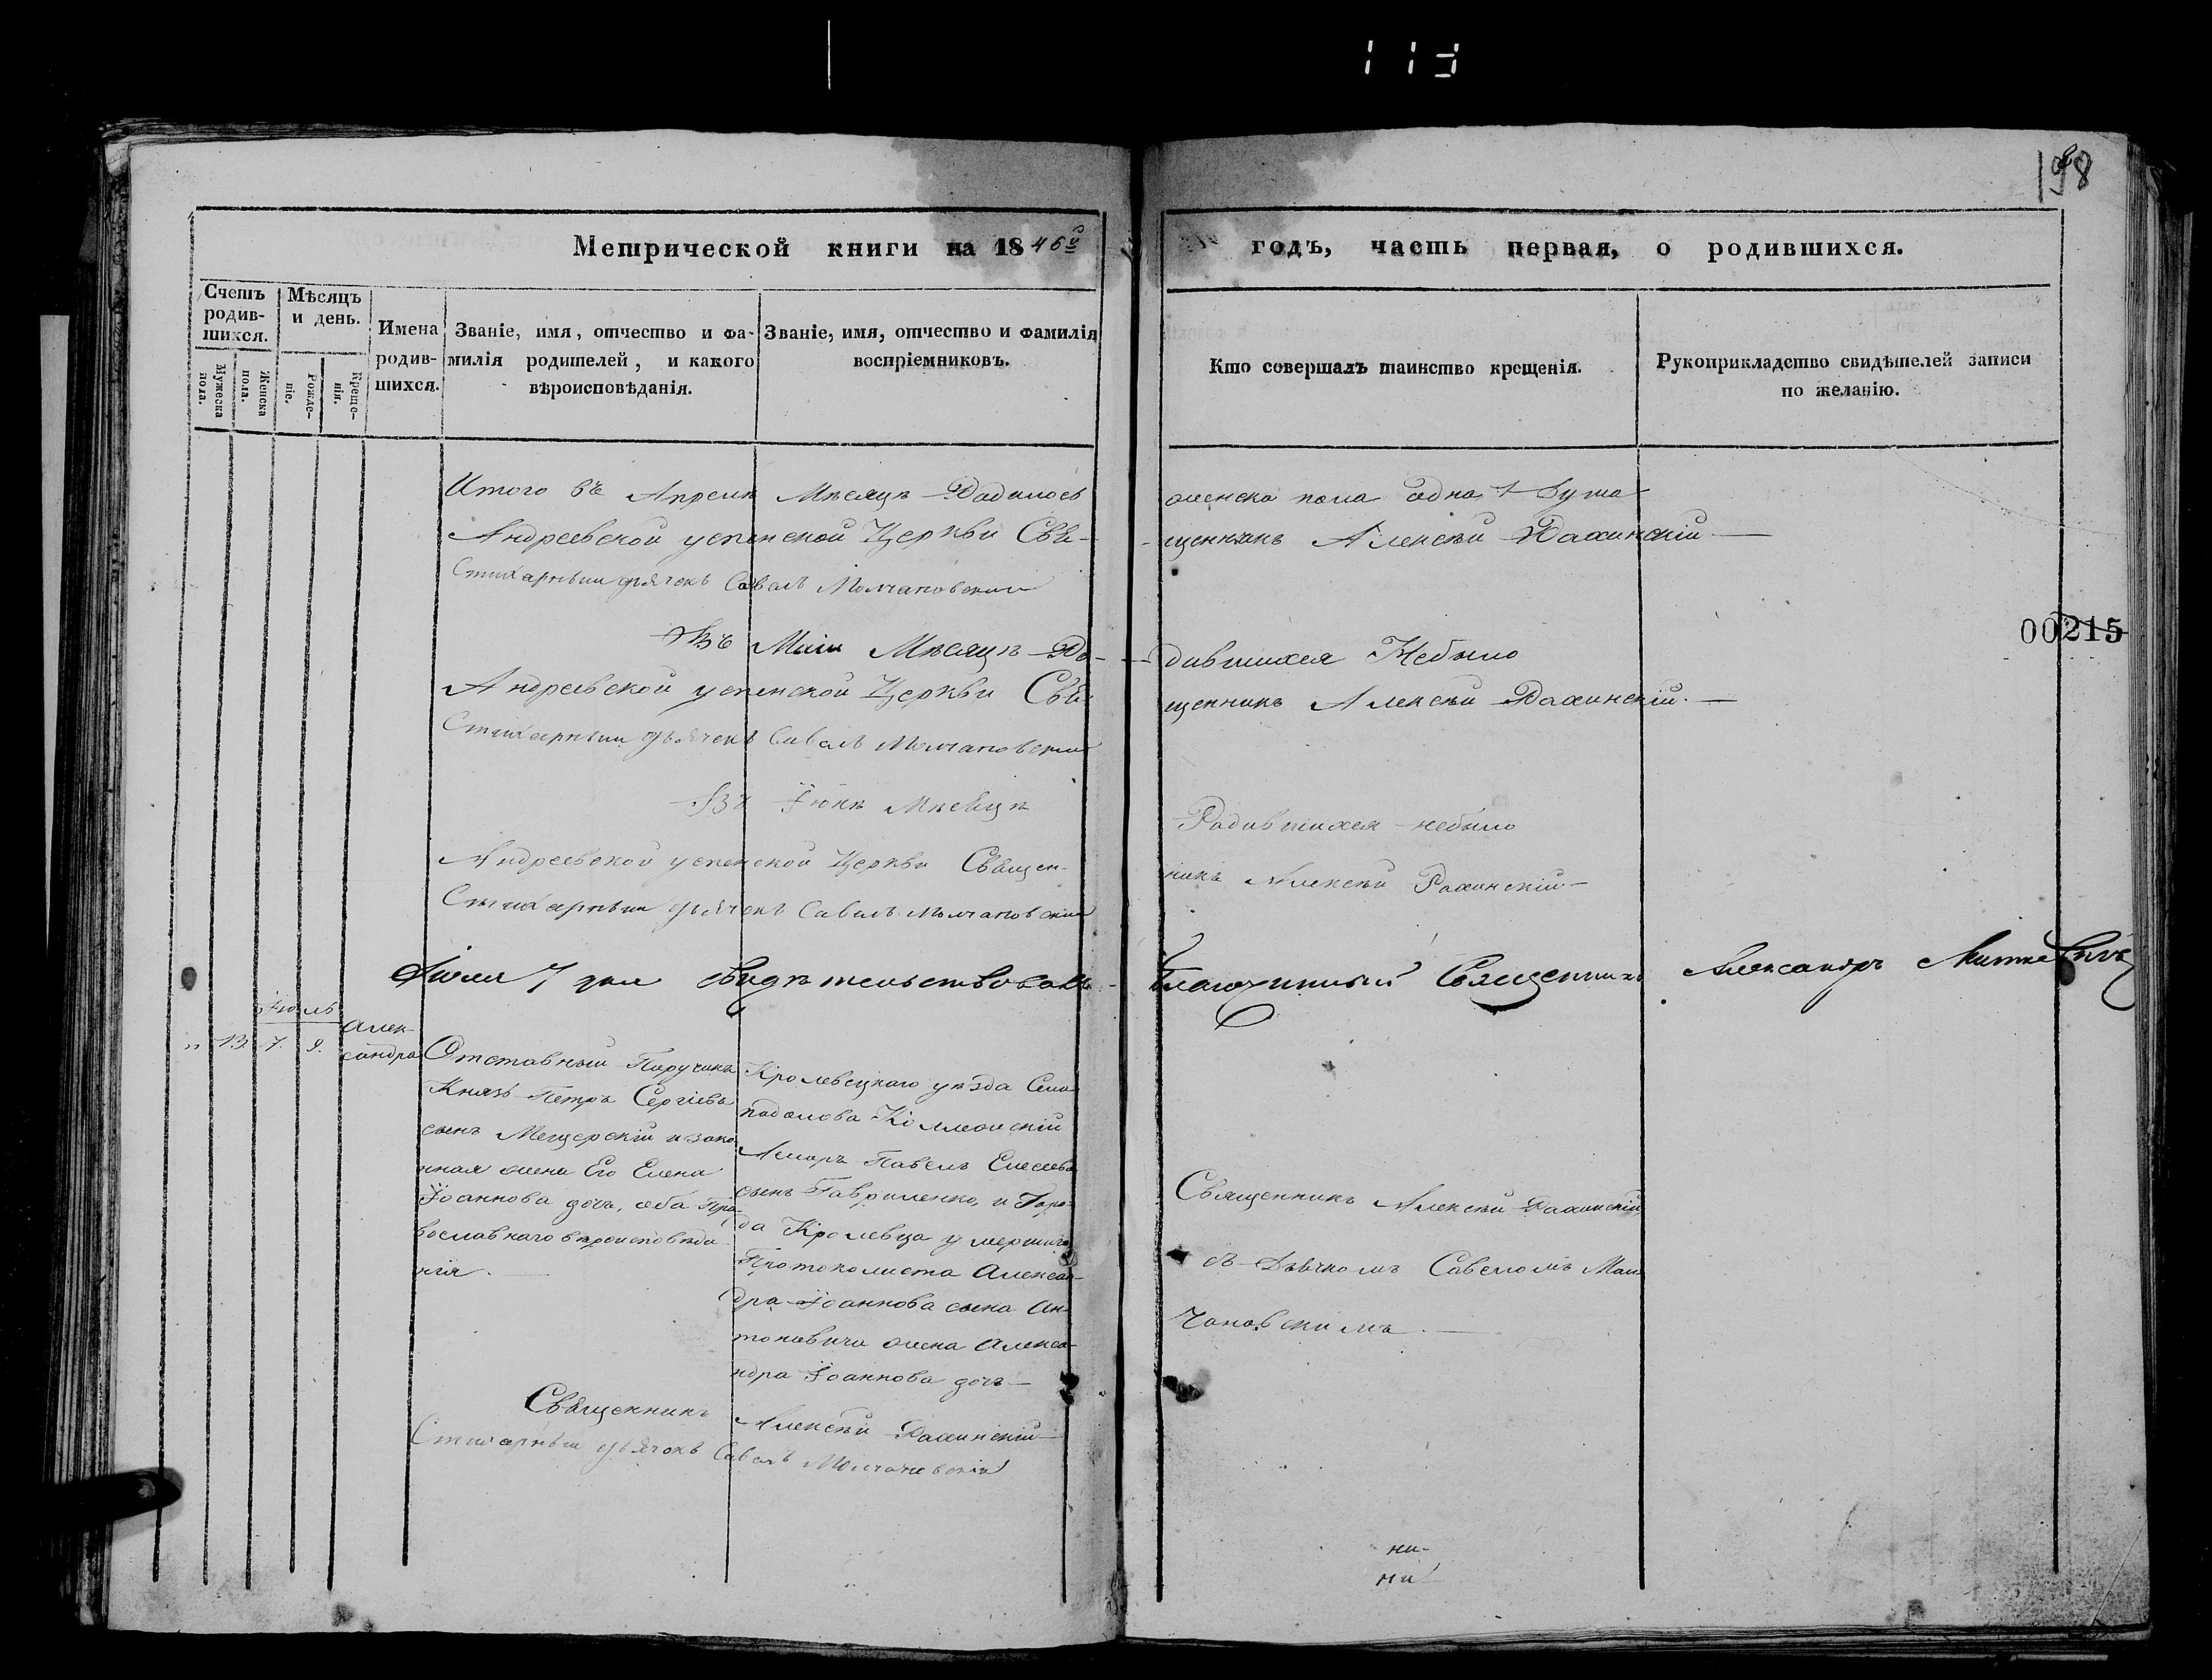 113
198
Метрической книги на 1846й годъ, часть первая, о родившихся.
Счетъ родив-шихся.
Мужеска пола.
Женска пола.
Мѣсяцъ и день.
Рожде-нія.
Креще-нія.
Имена родив-шихся.
Званіе, имя, отчество и фа-
милія родителей, и какого
вѣроисповѣданія.
Званіе, имя, отчество и фамилія
воспріемниковъ.
Кто совершалъ таинство крещенія.
Рукоприкладство свидѣтелей записи
по желанію.
Итого въ Апрелѣ Мѣсяцѣ Родилось женска пола одна 1 душа
Андреевской успенской Церкви Свя-щенникъ Алексѣй Рахинскій
Стихарный дьячекъ Савелъ Молчановскій
00215
Въ Маіи Мѣсяцѣ Ро-дившихся Небыло
Андреевской успенской Церкви Свя-щенникъ Алексѣй Рахинскій.
Стихарный дьячекъ Савелъ Молчановскій
Въ Іюнѣ Мѣсяцѣ Родившихся небыло
Андреевской успенской Церкви Священ-никъ Алексѣй Рахинскій
Стихарный дьячекъ Савелъ Молчановскій
Іюля 7 дня свидѣтельствовалъ Благочинный Священникъ Александръ
Іюль
" 13. 7. 9.
Алек-
сандра
Отставный Поручикъ
Князь Петръ Сергіевъ
сынъ Мещерскій и зако-
нная жена Его Елена
Іоаннова дочь, оба Пра-
вославнаго вѣроисповѣда-
нія.
Кролевецкаго уѣзда Села
Подолова
Павелъ Елесеевъ
сынъ Гавриленко, и Горо-
да Кролевца умершаго
Протоколиста Алексан-
дра Іоаннова сына Ан-
тоновича жена Алекса-
ндра Іоаннова дочь
Священникъ Алексѣй Рахинскій
съ Дьячкомъ Савеломъ Мол-
чановскимъ.
Священникъ Алексѣй Рахинскій
Стихарный дьячокъ Савелъ Молчановскій
ни-
ни